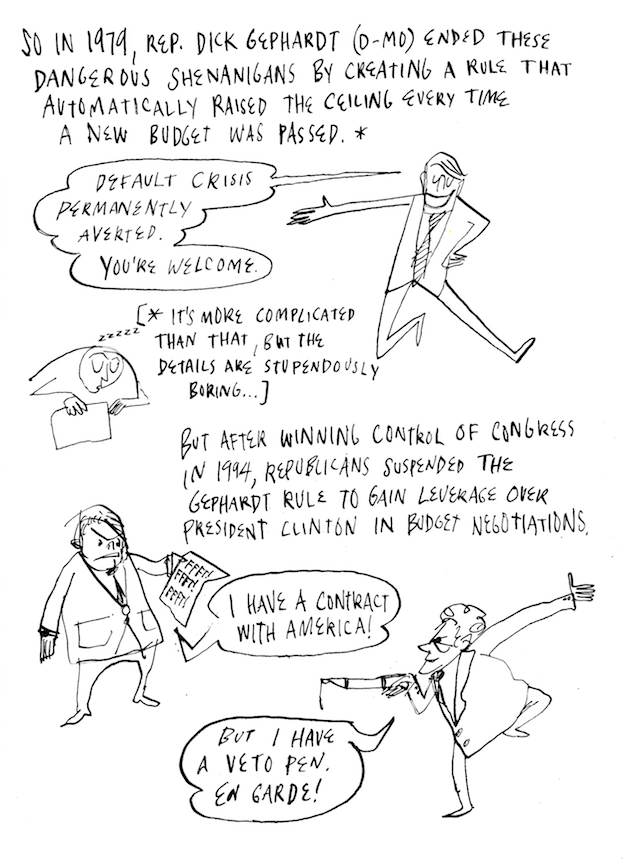 SO IN 1979, REP. DICK GEPHARDT (D-MO) ENDED THESE
DANGEROUS SHENANIGANS BY CREATING A RULE THAT
AUTOMATICALLY RAISED THE CEILING EVERY TIME
A NEW BUDGET WAS PASSED. *
DEFAULT CRISIS
PERMANENTLY
AVERTED.
YOU'RE WELCOME.
[* IT'S MORE COMPLICATED
THAN THAT, BUT THE
DETAILS ARE STUPENDOUSLY
BORING...]
ZZZZZ
BUT AFTER WINNING CONTROL OF CONGRESS
IN 1994, REPUBLICANS SUSPENDED THE
GEPHARDT RULE TO GAIN LEVERAGE OVER
PRESIDENT CLINTON IN BUDGET NEGOTIATIONS.
I HAVE A CONTRACT
WITH AMERICA!
BUT I HAVE
A VETO PEN.
EN GARDE!